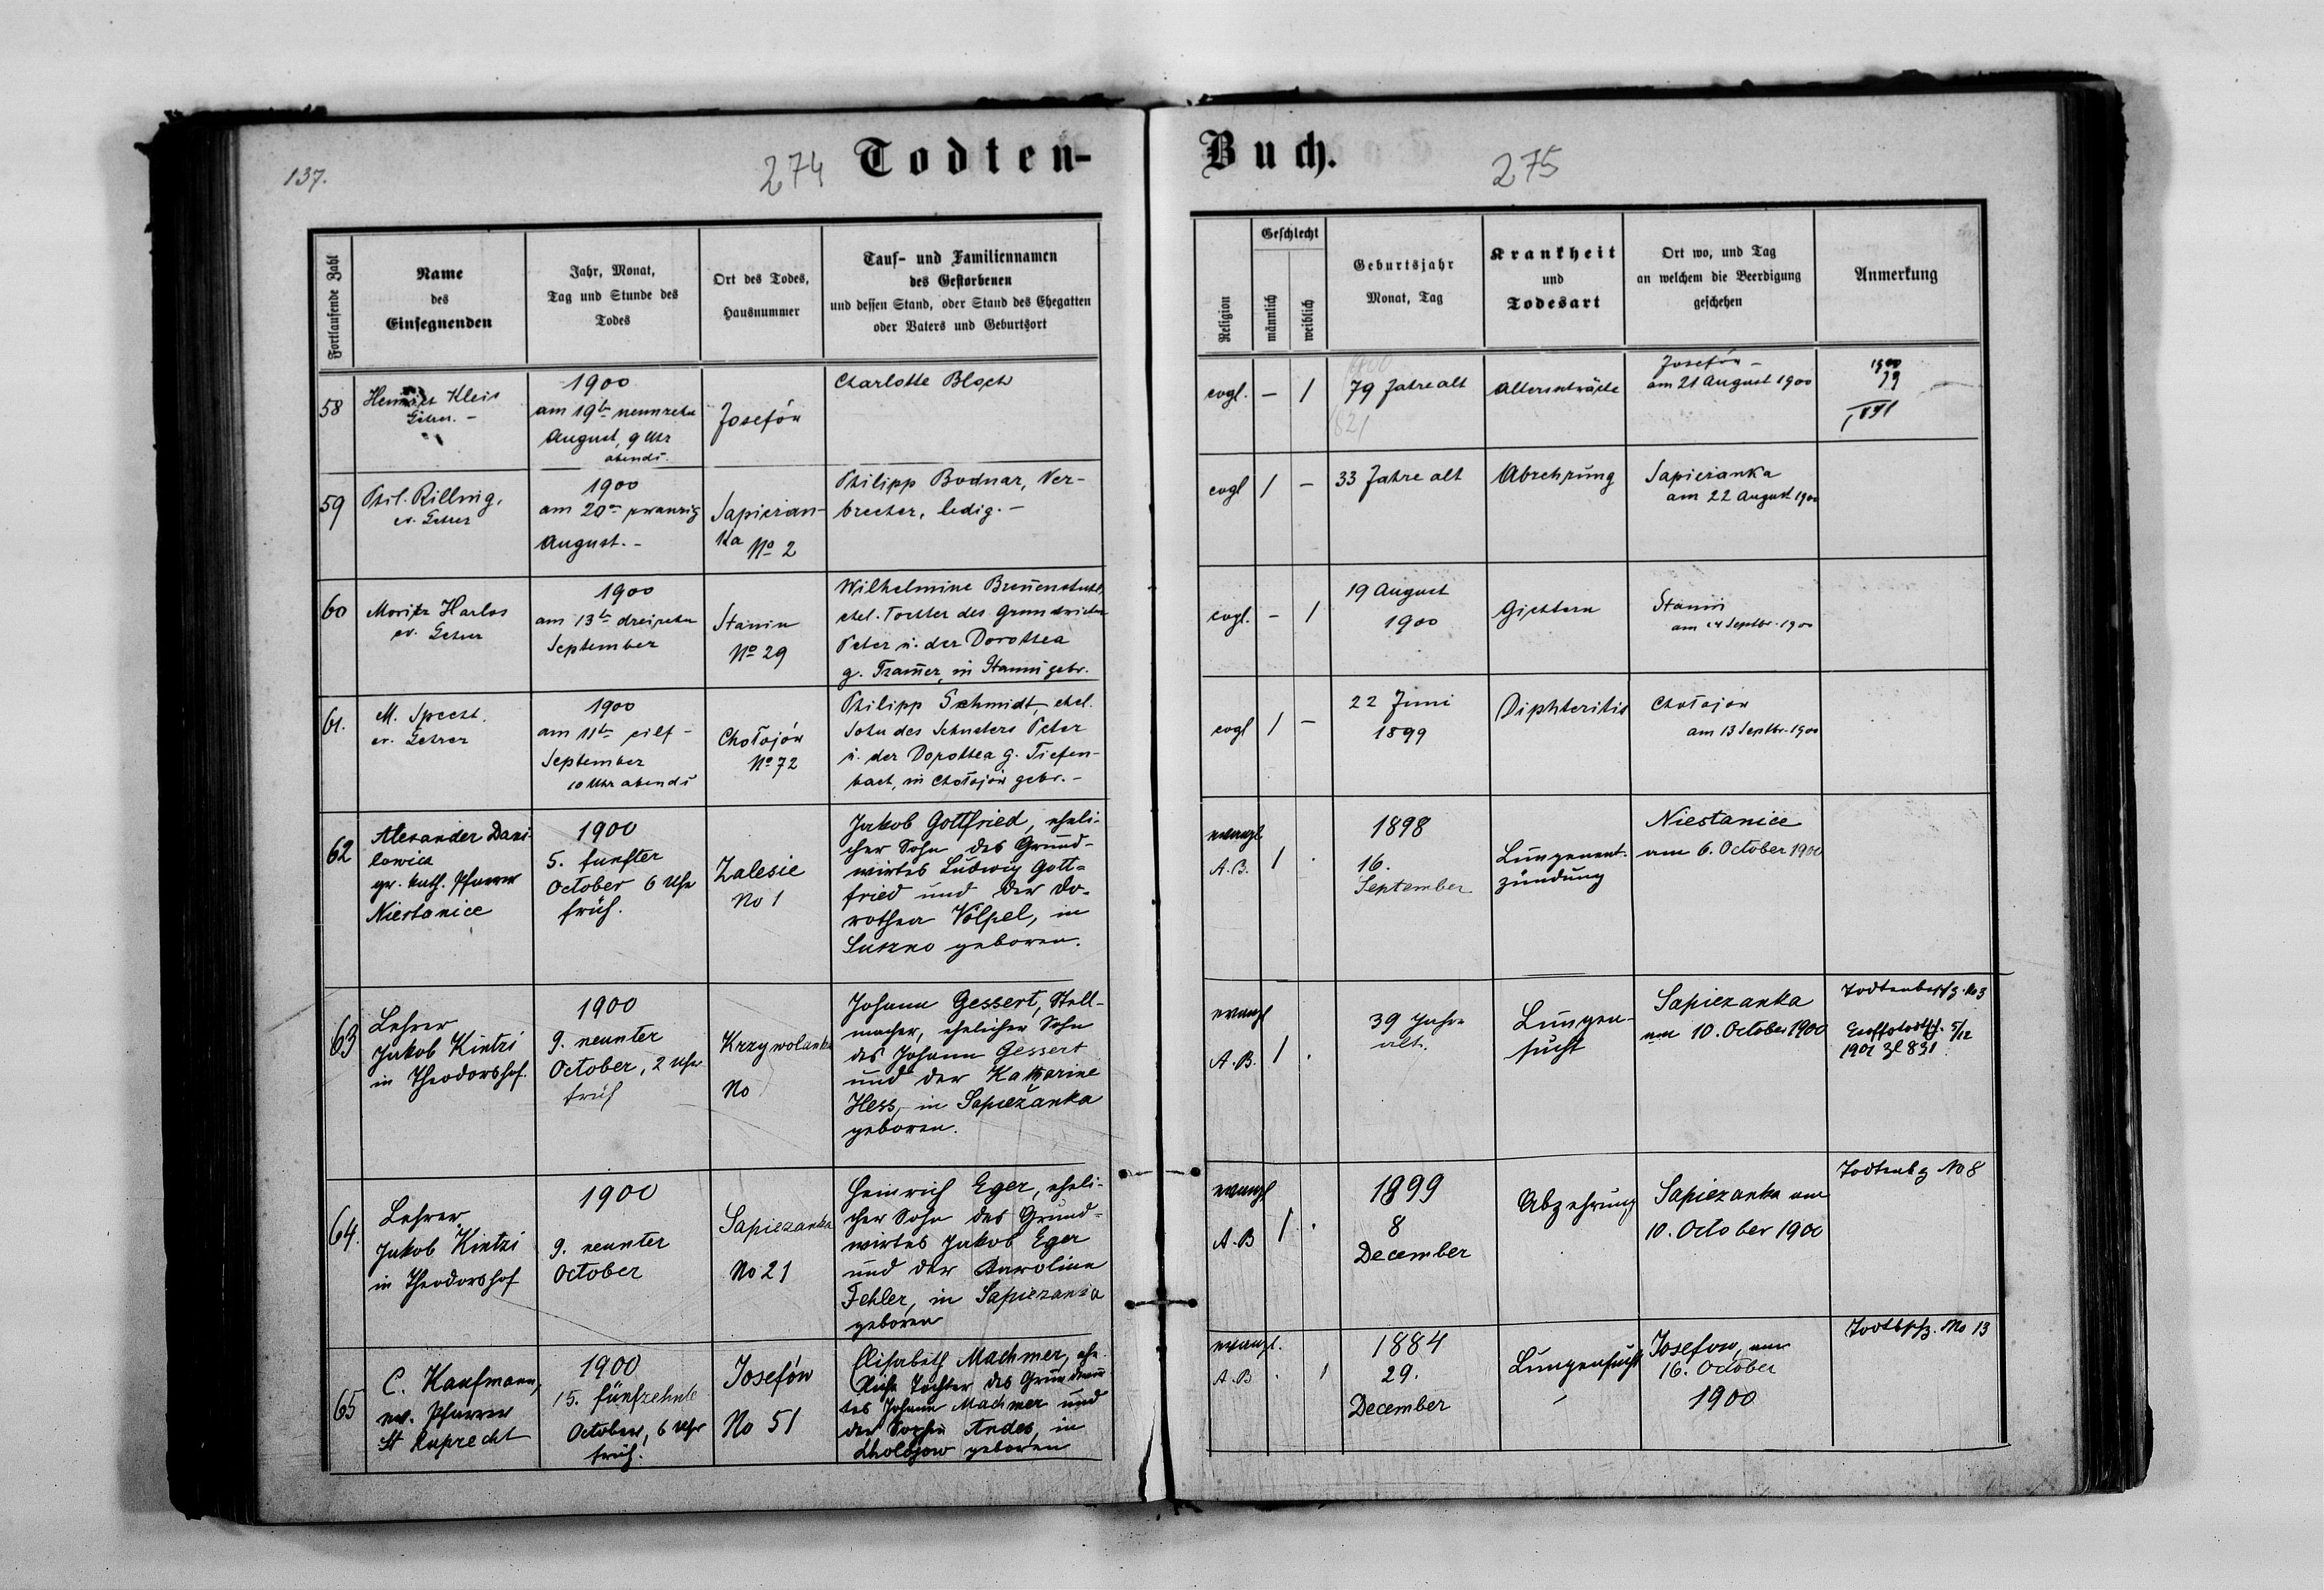 137.
274
Todten-
Fortlaufende Zahl
Name
des
Einsegnenden
Jahr, Monat,
Tag und Stunde des
Todes
Ort des Todes,
Hausnummer
Tauf- und Familiennamen
des Gestorbenen
und dessen Stand, oder Stand des Ehegatten
oder Vaters und Geburtsort
58
Kleis
Lehrer. -
1900
am 19ten neunzehn
August, 9 Uhr
abends.
Josefów
Charlotte Bloch
59
Phil. Rilling,
ev. Lehrer
1900
am 20ten zwanzig
August. -
Sapiezan-
ka
No 2
Philipp Bodnar, Ver-
brecher, ledig. -
60
Moritz Harlos
ev. Lehrer
1900
am 13ten dreizehn
September
Stanin
No 29
Wilhelmine Breñenstuhl,
ehel. Tochter des Grundwirten
Peter u. der Dorothea
g. Tram̄er, in Stanin gebr.
61.
M. Specht.
ev. Lehrer
1900
am 11ten eilf -
September
10 Uhr abends
Chołojów
No 72
Philipp Schmidt, ehel.
Sohn des Schusters Peter
u. der Dorothea g. Tiefen-
bach, in Chołojów gebr. -
62
Alexander Dani-
lowicz
gr. kath. Pfarrer
Niestanice
1900
5. fünfter
October 6 Uhr
früh.
Zalesie
No 1
Jakob Gottfried, eheli-
cher Sohn des Grund-
wirtes Ludwig Gott-
fried und der Do-
rothea Völpel, in
Suszno geboren.
63
Lehrer
Jakob Kintzi
in Theodorshof.
1900
9. neunter
October, 2 Uhr
früh
Krzywolanka
No
Johann Gessert, Stell-
macher, ehelicher Sohn
des Johann Gessert
und der Katharine
Hess, in Sapieżanka
geboren.
64.
Lehrer
Jakob Kintzi
in Theodorshof
1900
9. neunter
October
Sapiezanka
No 21
Heinrich Eger, eheli-
cher Sohn des Grund-
wirtes Jakob Eger
und der Karoline
Fehler, in Sapiezanka
geboren
65
C. Kaufmann,
ev. Pfarrer
St Ruprecht
1900
15. fünfzehnte
October, 6 Uhr
früh.
Josefów
No 51
Elisabeth Machmer, ehe-
liche Tochter des Grundwir-
tes Johann Machmer und
der Sophie Andes, in
Cholojow geboren
Buch.
275
Religion
Geschlecht
männlich
weiblich
Geburtsjahr
Monat, Tag
Krankheit
und
Todesart
Ort wo, und Tag
an welchem die Beerdigung
geschehen
Anmerkung
evgl. - 1
1900
79 Jahre alt
1821
Altersschwäche
Josefów -
am 21 August 1900
1900
79
1821
evgl 1 -
33 Jahre alt
Abzehrung
Sapiezanka
am 22 August 1900
evgl. - 1
19 August
1900
Gichtern
Stanin
am 14 Septbr. 1900
evgl 1 -
22 Juni
1899
Diphteritis
Chołojow
am 13 Septbr. 1900
evangl
A.B. 1 .
1898
16.
September
Lungenent-
zündung
Niestanice
am 6. October 1900
evangl
A.B. 1 .
39 Jahre
alt.
Lungen-
sucht
Sapiezanka
am 10. October 1900
No 3
5/12
1901 Zl 831
evangl
A.B 1 .
1899
8
December
Abzehrung
Sapiezanka am
10. October 1900
No 8
evangl.
A.B . 1
1884
29.
December
Lungensucht
Josefow, am
16. October
1900
No 13